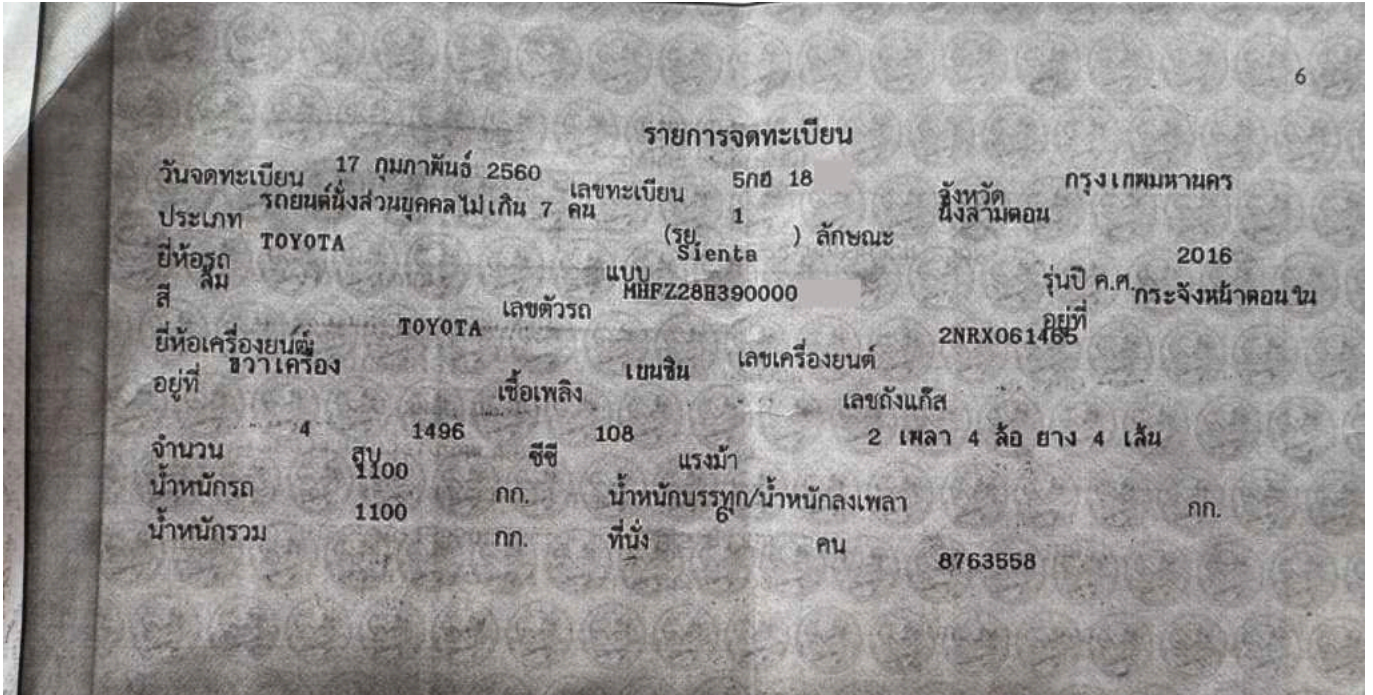 6
รายการจดทะเบียน
วันจดทะเบียน 17 กุมภาพันธ์ 2560 เลขทะเบียน 5กฮ 18 จังหวัด กรุงเทพมหานคร
ประเภท รถยนต์นั่งส่วนบุคคลไม่เกิน 7 คน (รย. 1 ) ลักษณะ นั่งสามตอน
ยี่ห้อรถ TOYOTA แบบ Sienta รุ่นปี ค.ศ. 2016
สี ส้ม เลขตัวรถ MHFZ28H390000 อยู่ที่ กระจังหน้าตอนใน
ยี่ห้อเครื่องยนต์ TOYOTA เลขเครื่องยนต์ 2NRX061465
อยู่ที่ ขวาเครื่อง เชื้อเพลิง เบนซิน เลขถังแก๊ส
จำนวน 4 สูบ 1496 ซีซี 108 แรงม้า 2 เพลา 4 ล้อ ยาง 4 เส้น
น้ำหนักรถ 1100 กก. น้ำหนักบรรทุก/น้ำหนักลงเพลา กก.
น้ำหนักรวม 1100 กก. ที่นั่ง 6 คน 8763558